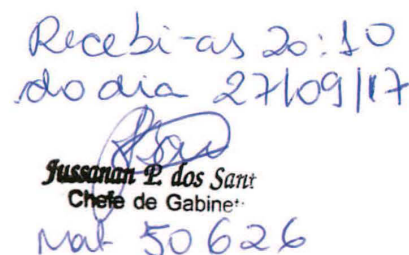 Recebi-as 20:10
do dia 27/09/17
Jussanan P. dos Sant
Chefe de Gabinet
Mat 50626